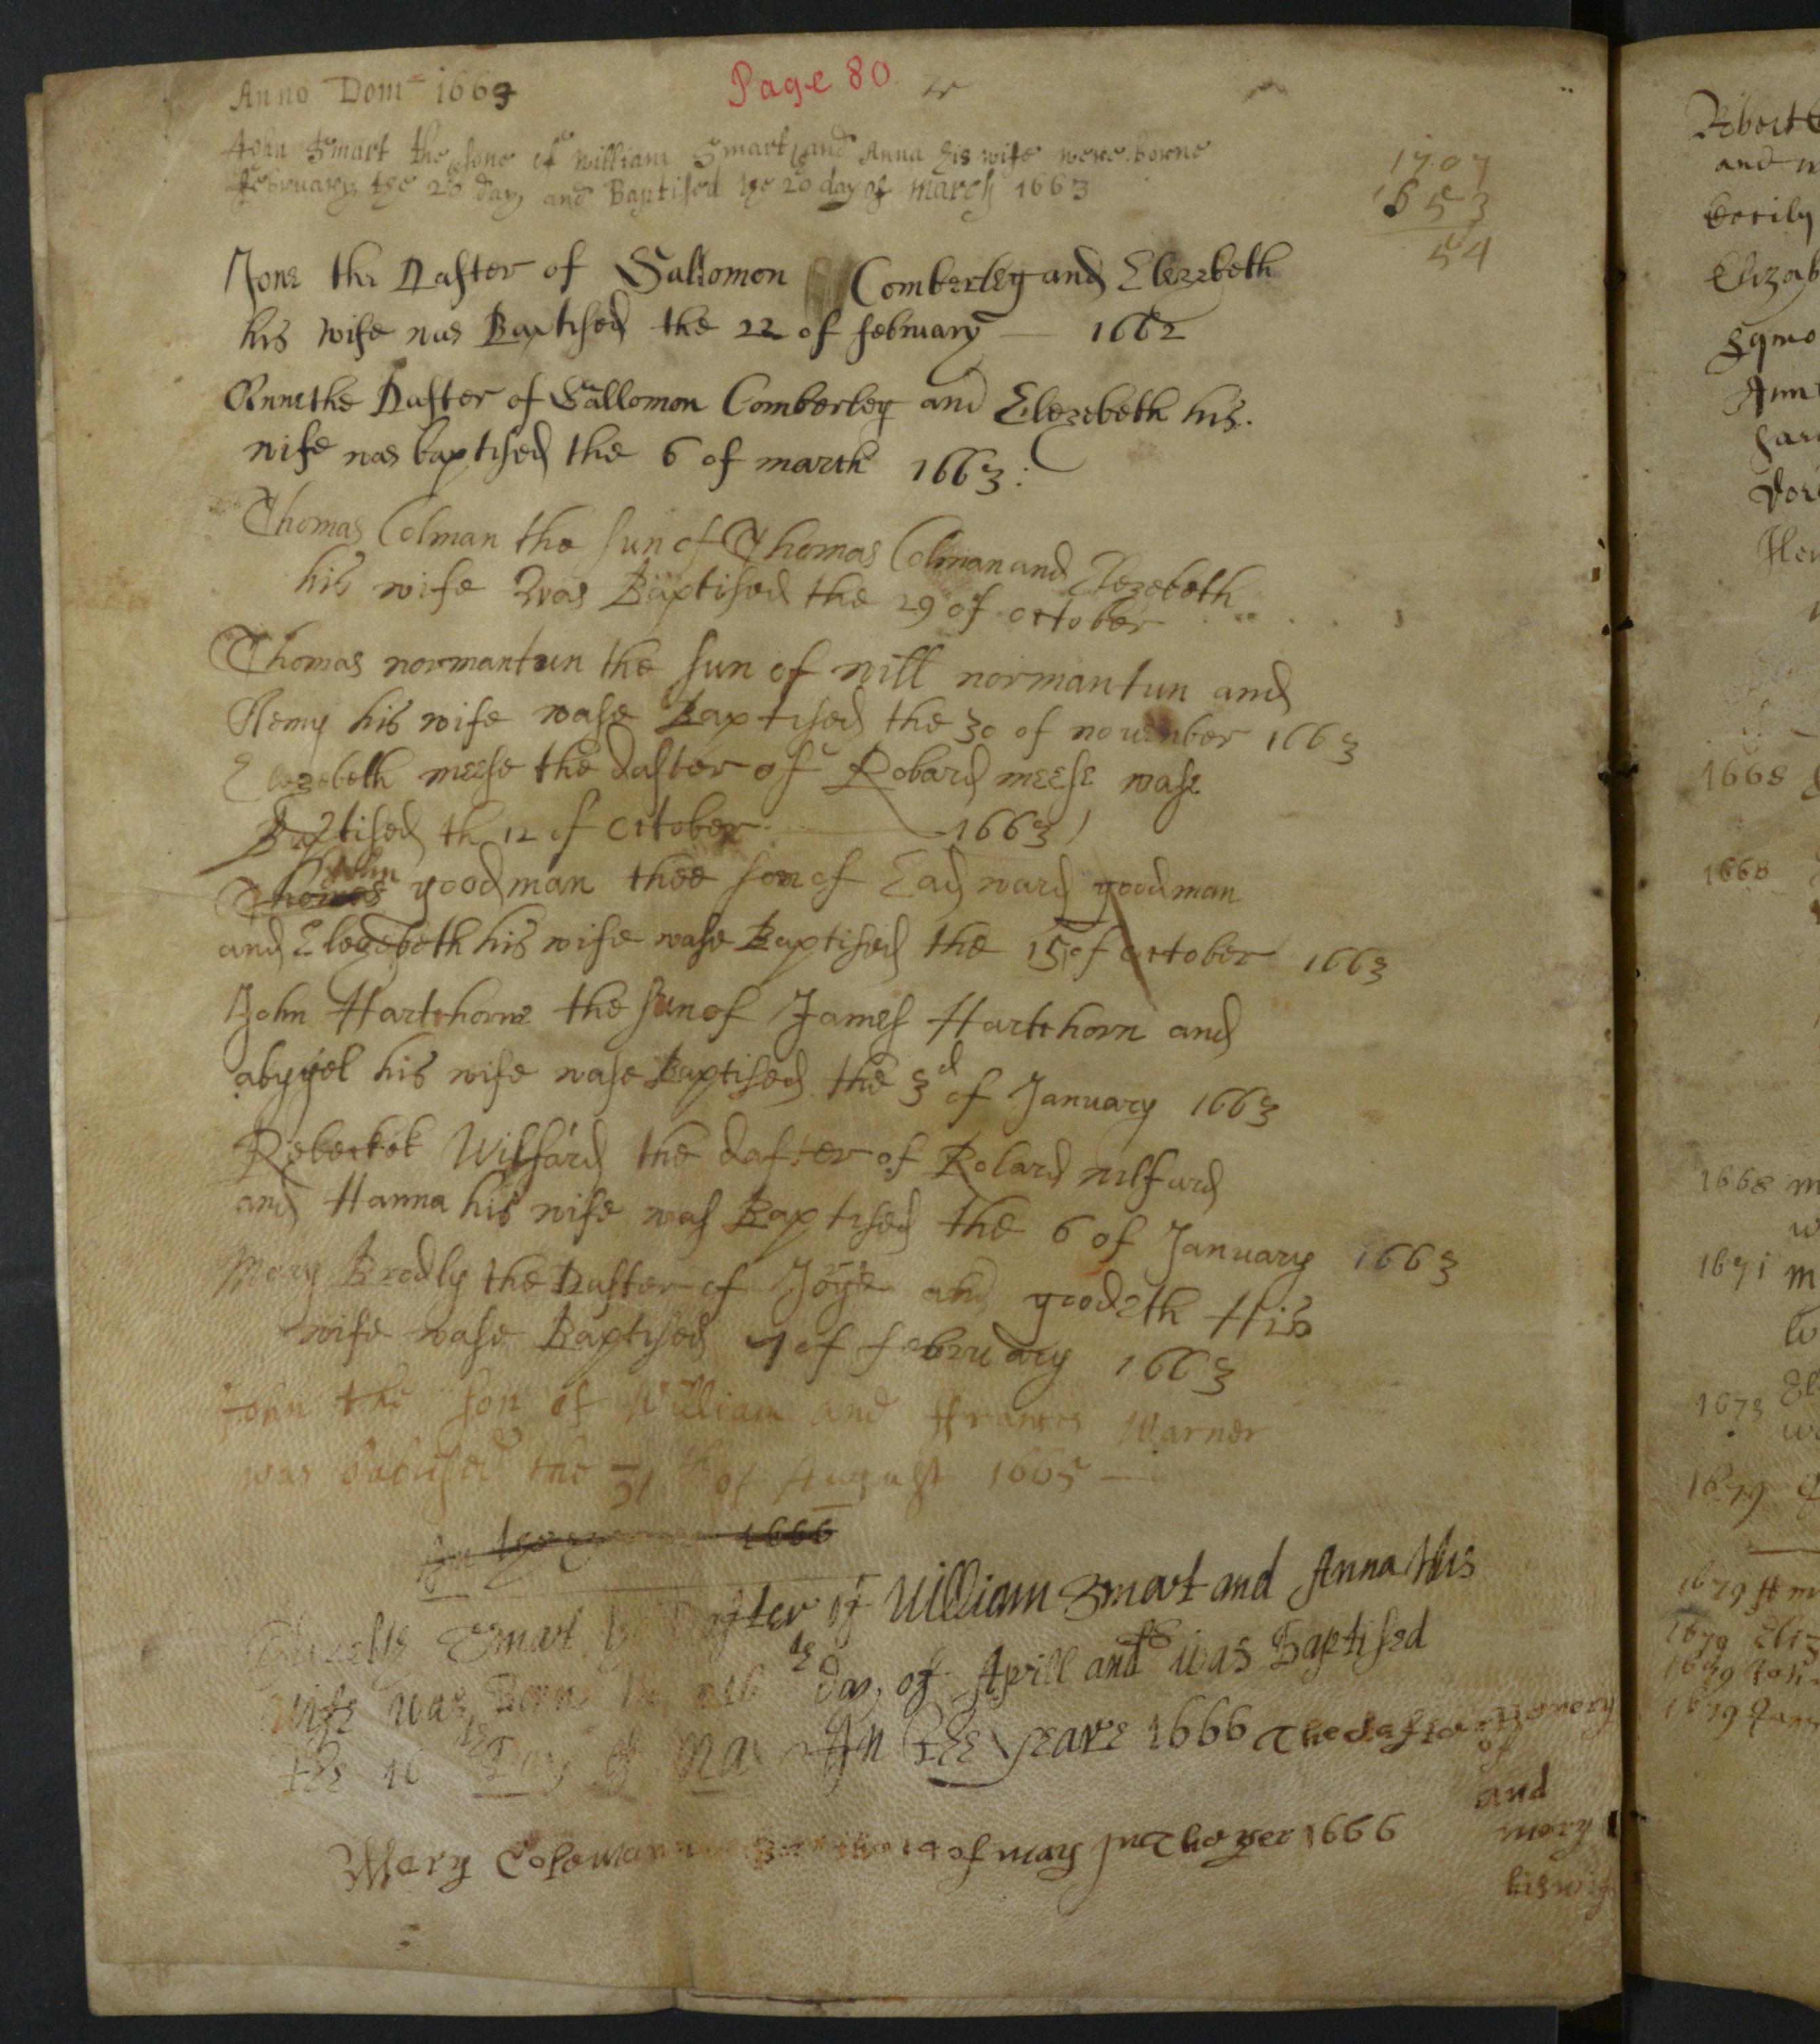 Page 80
Anno Dom 1663
John Smart the sone of William Smart and Anna his wife were borne
February the 20 day and Baptised the 20 day of March 1663
1707
1653
54
Jone the Dafter of Sallomon Comberley and Elezebeth
his wife was Baptised the 22 of february 1662
Anne the Dafter of Sallomon Comberley and Elezebeth his
wife was baptised the 6 of march 1663
Thomas Colman the sun of Thomas Colman and Elezebeth
his wife was Baptised the 29 of october
Thomas normantun the sun of will normantun and
his wife wase Baptised the 30 of november 1663
Elezebeth meese the dafter of Robard meese wase
Baptised th 12 of october 1663
John
Thomas goodman thee son of Eadward goodman
and Elezebeth his wife wase Baptised the 15 of october 1663
John Hartchorne the sun of James Hartchorn and
abygel his wife wase Baptised the 3d of January 1663
Wilfard the dafter of Robard wilfard
and Hanna his wife was Baptised the 6 of January 1663
Mary Bradly the Dafter of and goodeth His
wife wase Baptised 7 of february 1663
John the son of William and ffrances Warner
was babtised the 31 th of August 1665
1666
Smart Dafter of William Smart and Anna His
wife was Borne the day of Aprill and was Baptised
the 10 Day of May In the yeare 1666 The dafter of
and
mary
his wif
Mary Coleman of may in The yer 1666
Robert
and
Cecily
Elizab
1668
1668
1668 m
1671 m
1673
1679
1679
1679 Eliz
1679
1679